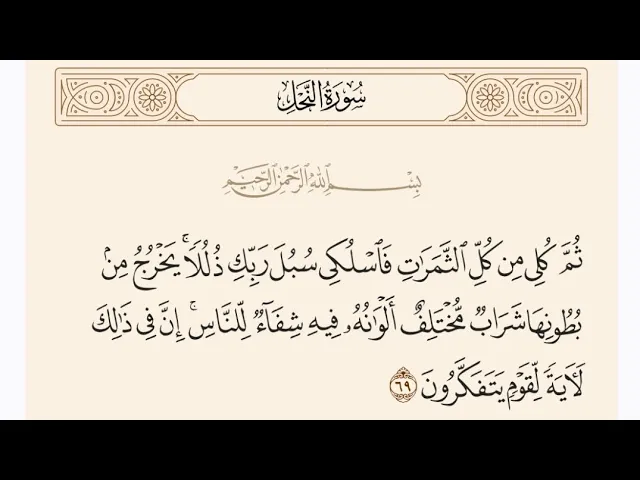 سُورَةُ النَّحْلِ
بِسْمِ ٱللَّهِ ٱلرَّحْمَٰنِ ٱلرَّحِيمِ
ثُمَّ كُلِى مِن كُلِّ ٱلثَّمَرَٰتِ فَٱسْلُكِى سُبُلَ رَبِّكِ ذُلُلًا ۚ يَخْرُجُ مِنۢ
بُطُونِهَا شَرَابٌ مُّخْتَلِفٌ أَلْوَٰنُهُۥ فِيهِ شِفَآءٌ لِّلنَّاسِ ۗ إِنَّ فِى ذَٰلِكَ
لَـَٔايَةً لِّقَوْمٍ يَتَفَكَّرُونَ ٦٩